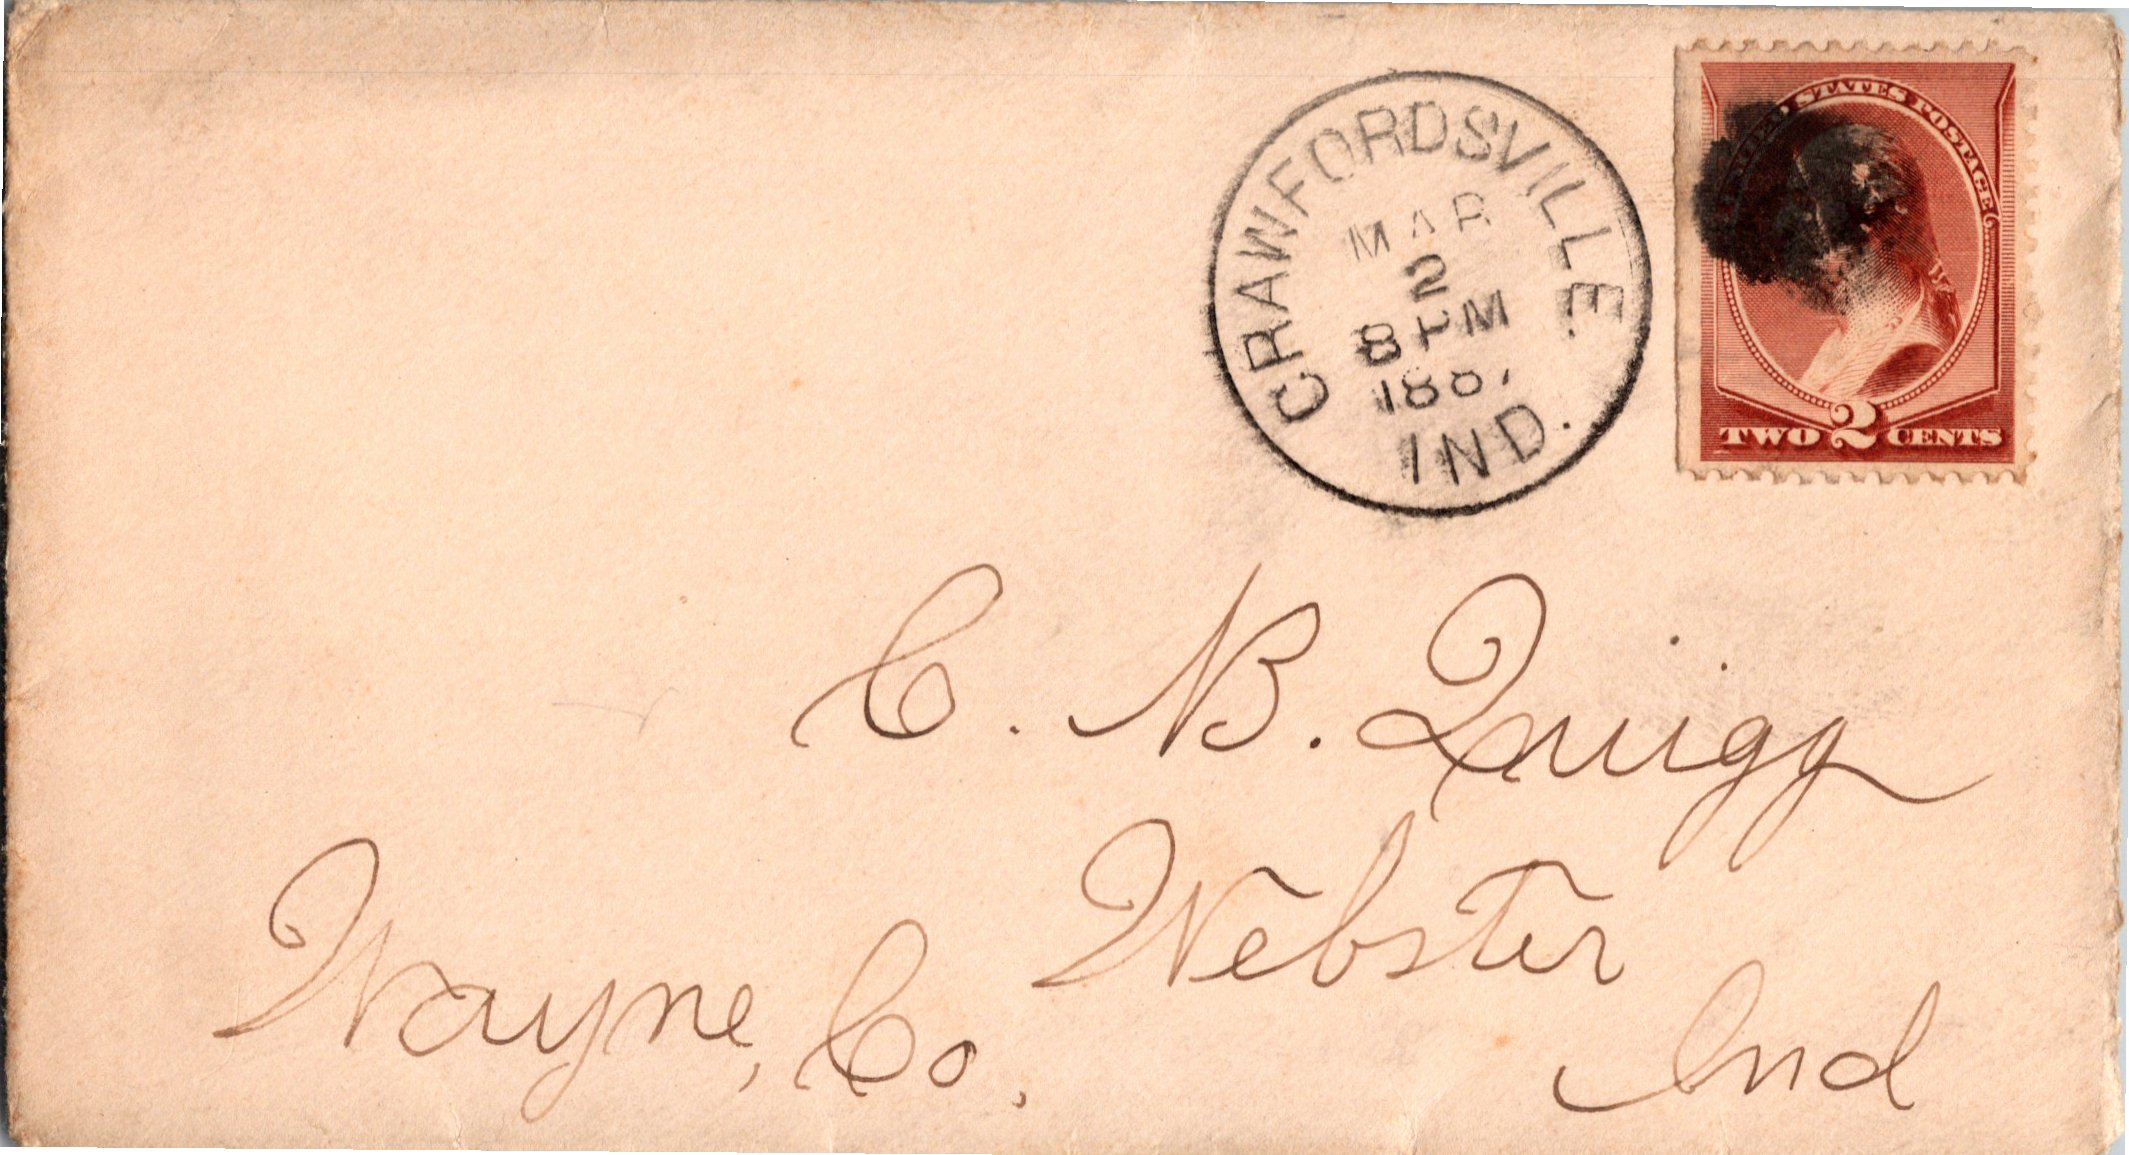 CRAWFORDSVILLE.
MAR
2
8 PM
1887
IND.
UNITED STATES POSTAGE
TWO 2 CENTS
C. B. Quigg
Webster
Wayne, Co.
Ind